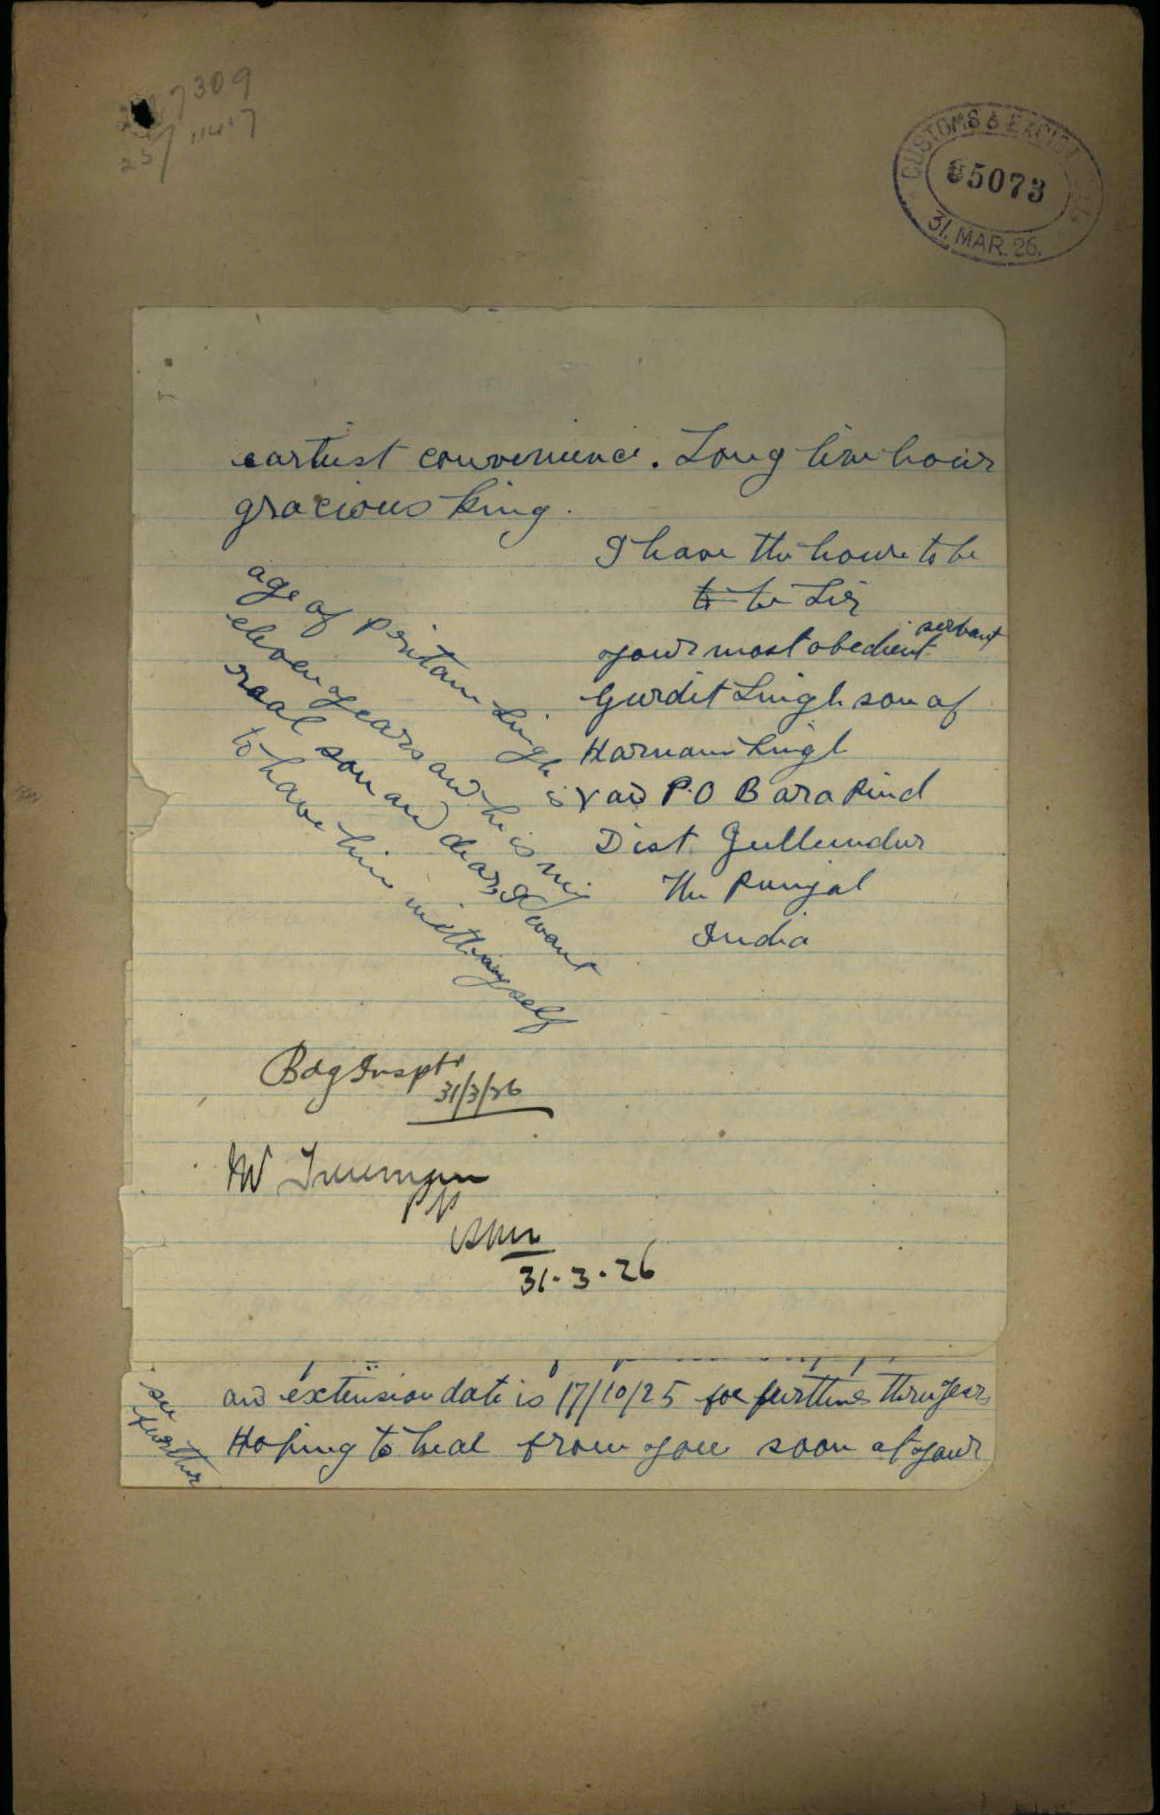 7309
25/11417
CUSTOMS & EXCISE
85073
31. MAR. 26.
earliest convenience. Long live hour
gracious king.
I have the honur to be
to be Sir
your most obedient servant
Gurdit Singh son of
Harnam Singh
V and P.O Bara Pind
Dist. Jullundur
The Punjab
India
age of Pritam Singh is
eleven years and he is my
raal son and dear, I want
to have him with myself
Bdg Insptr
31/3/26
31.3.26
and extension date is 17/10/25 for further three years
Hoping to hear from you soon at your
see further